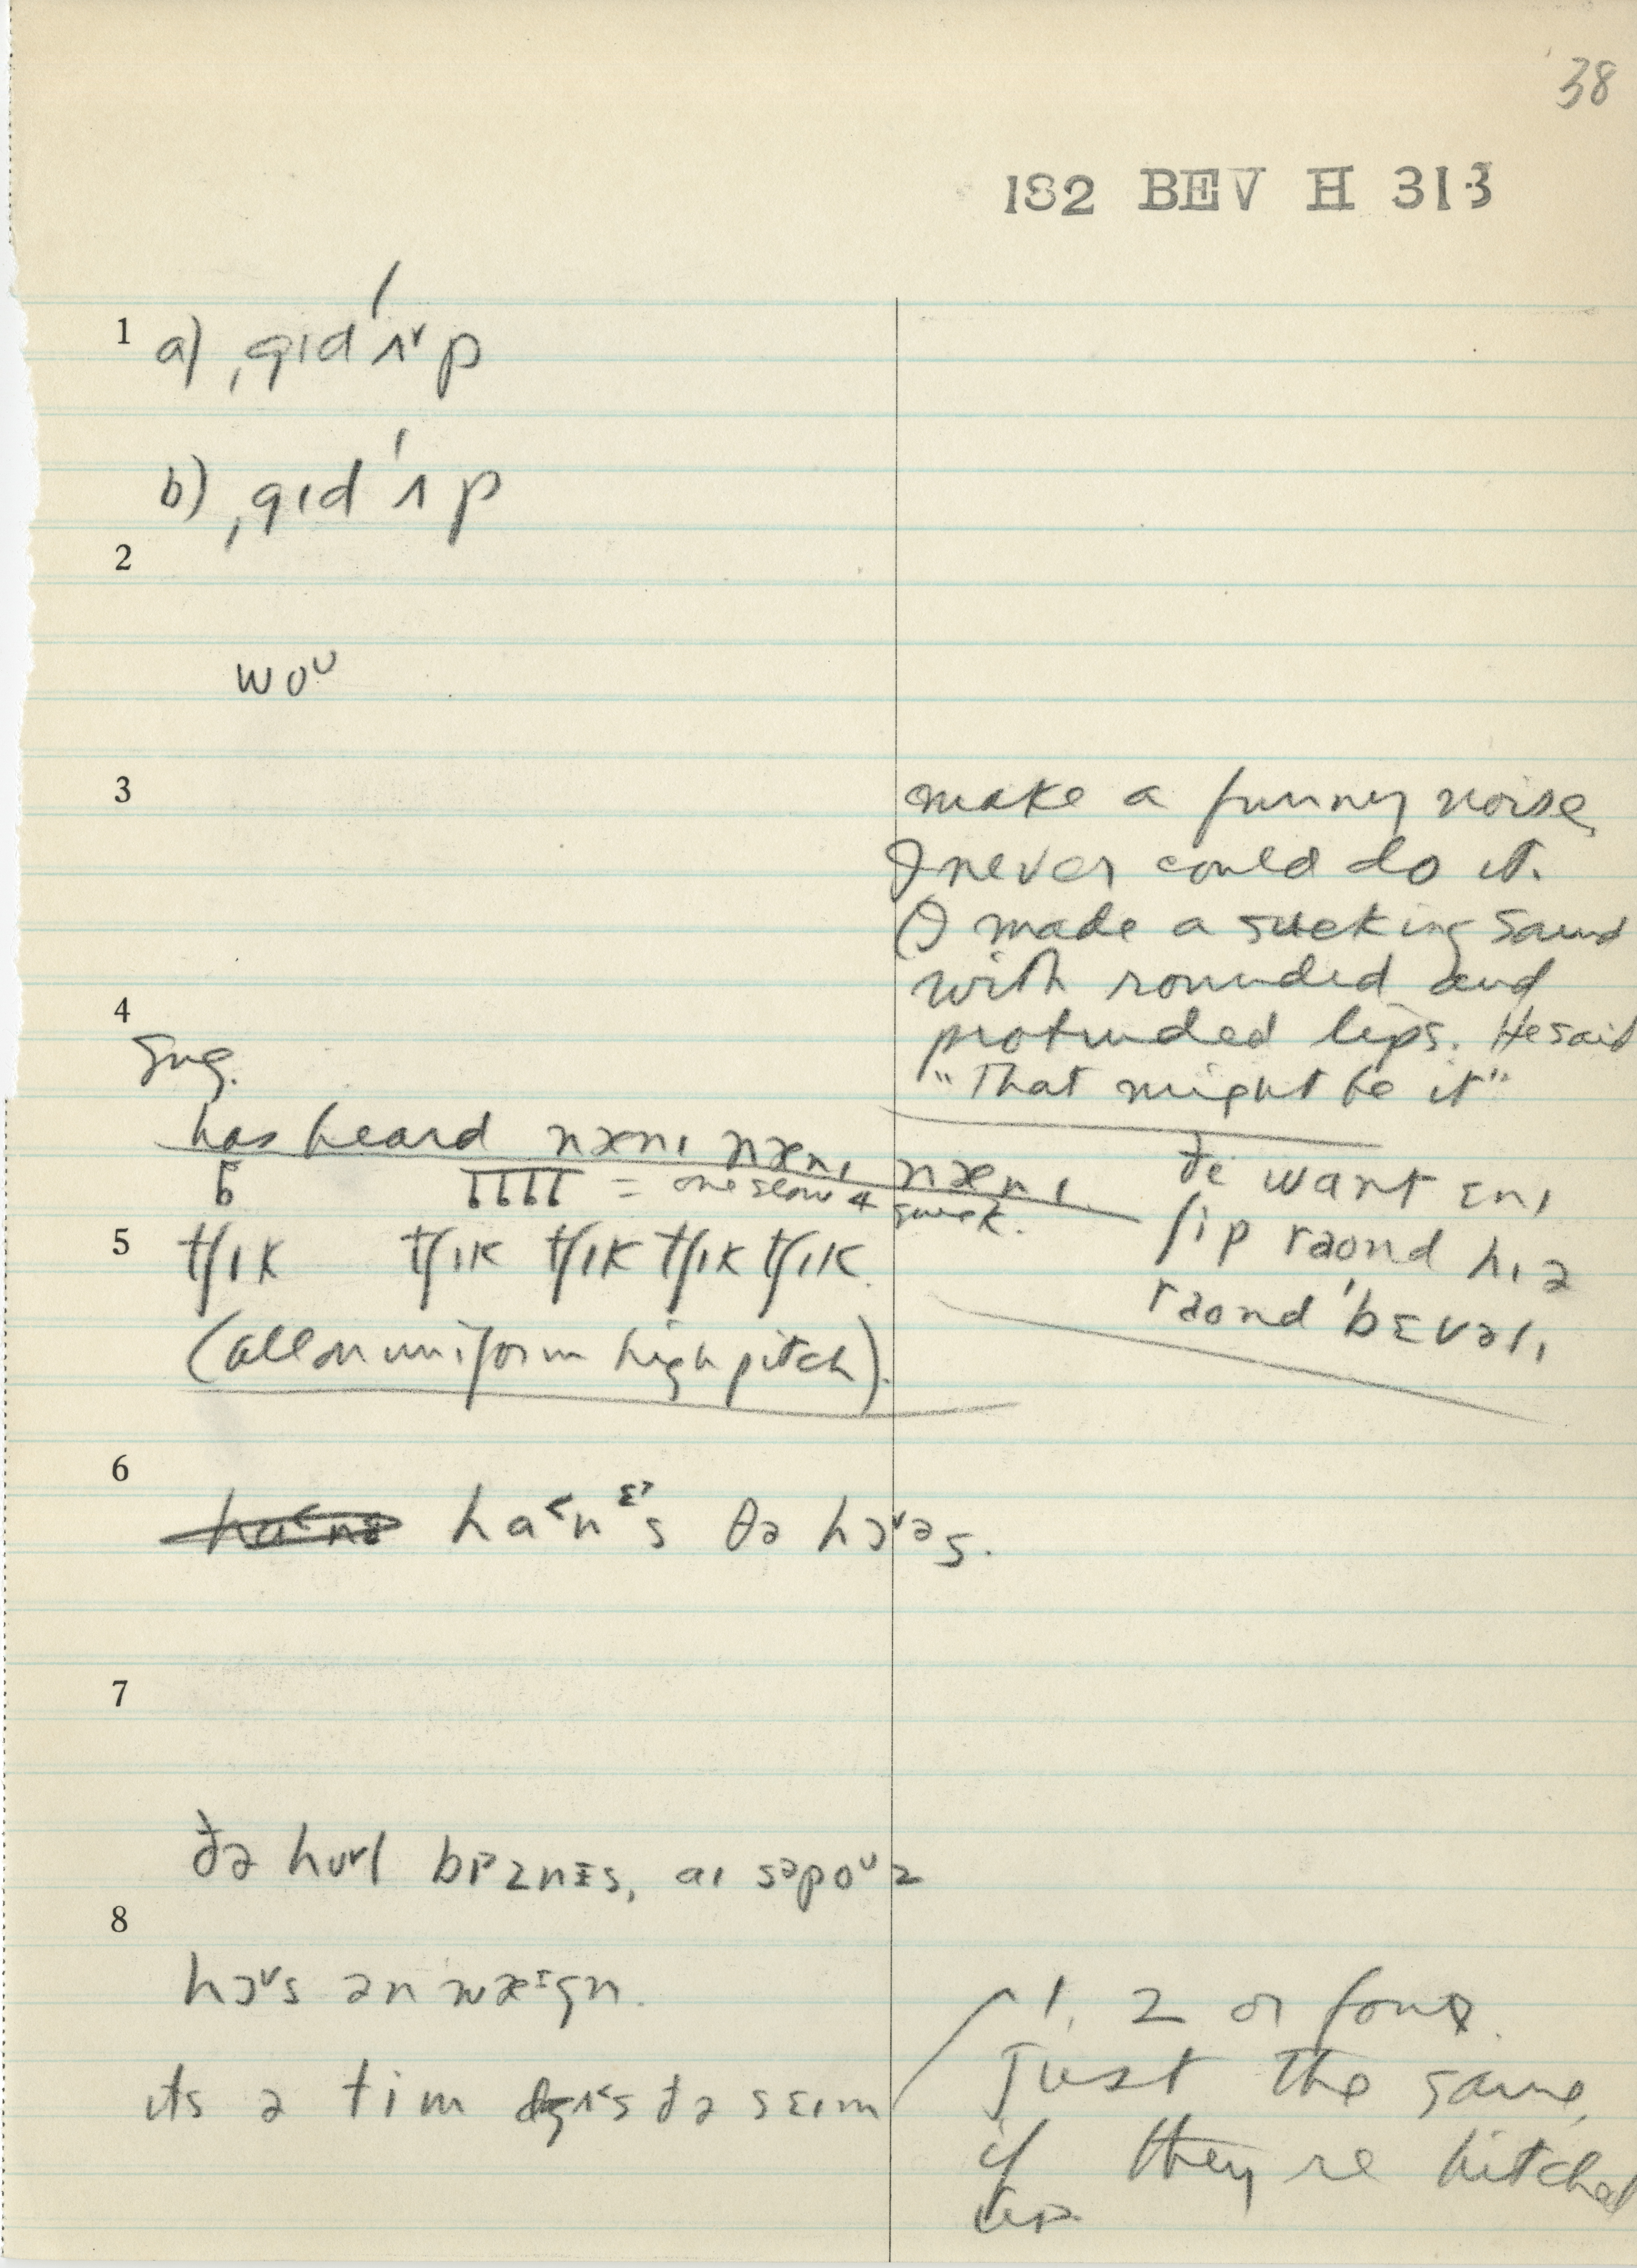 38
182 BEV H 313
1 a) ˌgɪd ˈʌ˅p
b) ˌgɪd ˈʌp
2
woᴜ
3 make a funny noise,
I never could do it.
(I made a sucking sound
with rounded and
protruded lips. He said
"That might be it"
4
Sug.
has heard nænɪ nænɪ nænɪ
= one slow 4 quick.
5 tʃɪk tʃɪk tʃɪk tʃɪk tʃɪk.
(all on uniform high pitch).
ðe want ɛnɪ
ʃip raond hɪə
raond ˈbɛvəlɪ
6
ha˂nᵋ˒s ðə hɔ˅əs.
7
ðə hʊ˅l bɪznɪs, aɪ səpoᴜz
8
hɔ˅s ən wæɪgn.
ɪts ə tim dʒʌ˂s ðə sɛɪm
1, 2 or four.
Just the same,
if they're hitched
up.